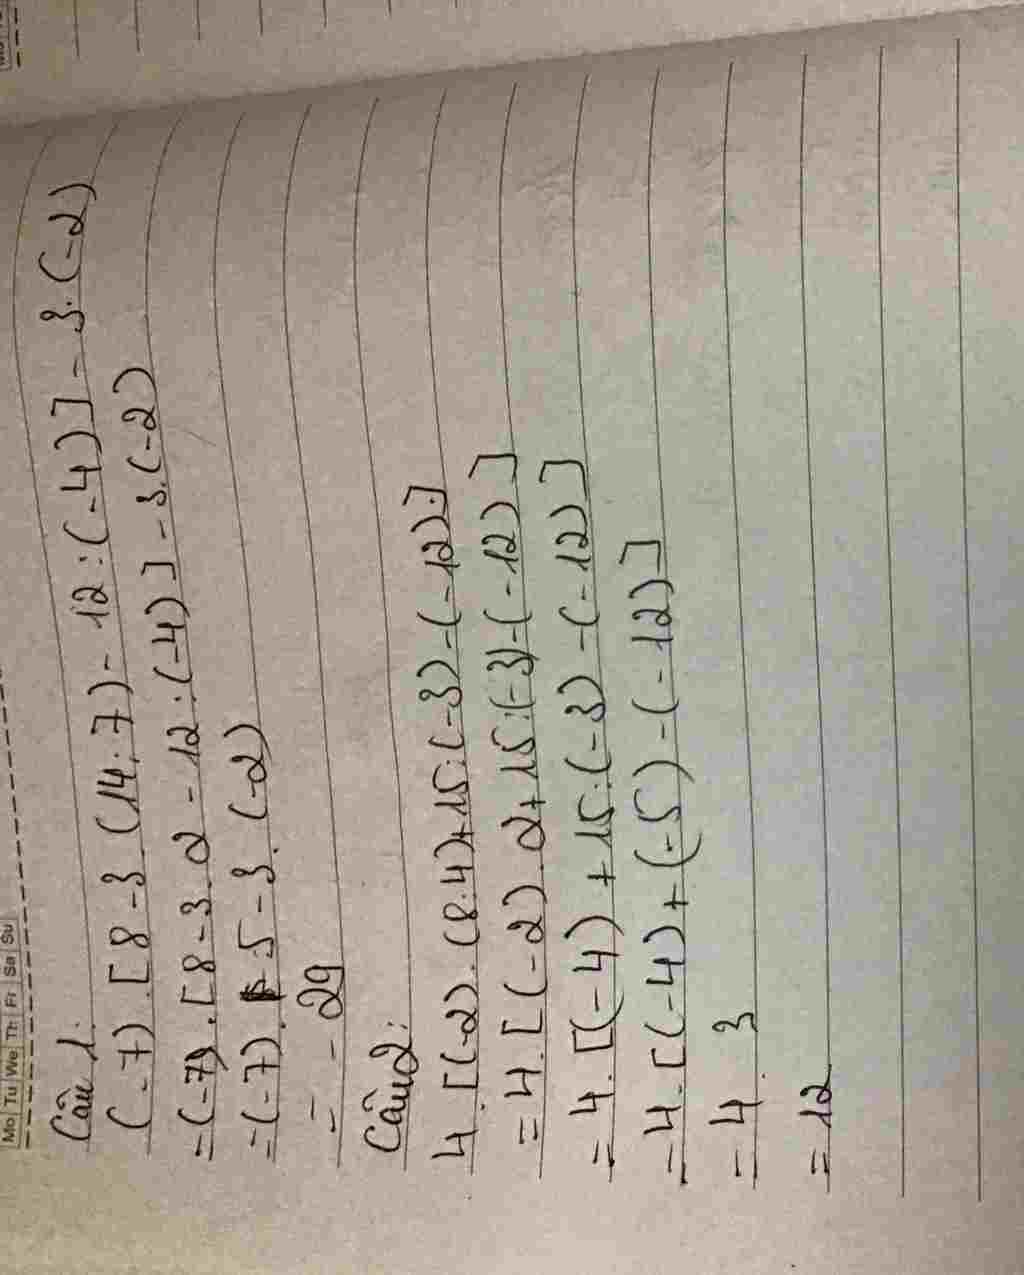 Mo Tu We Th Fr Sa Su
Câu 1:
(-7).[8-3.(14:7)-12:(-4)]-3.(-2)
=(-7).[8-3.2-12:(-4)]-3.(-2)
=(-7).5-3.(-2)
=-29
Câu 2:
4.[(-2).(8:4)+15:(-3)-(-12).]
=4.[(-2).2+15:(-3)-(-12)]
=4.[(-4)+15:(-3)-(-12)]
=4.[(-4)+(-5)-(-12)]
=4.3
=12